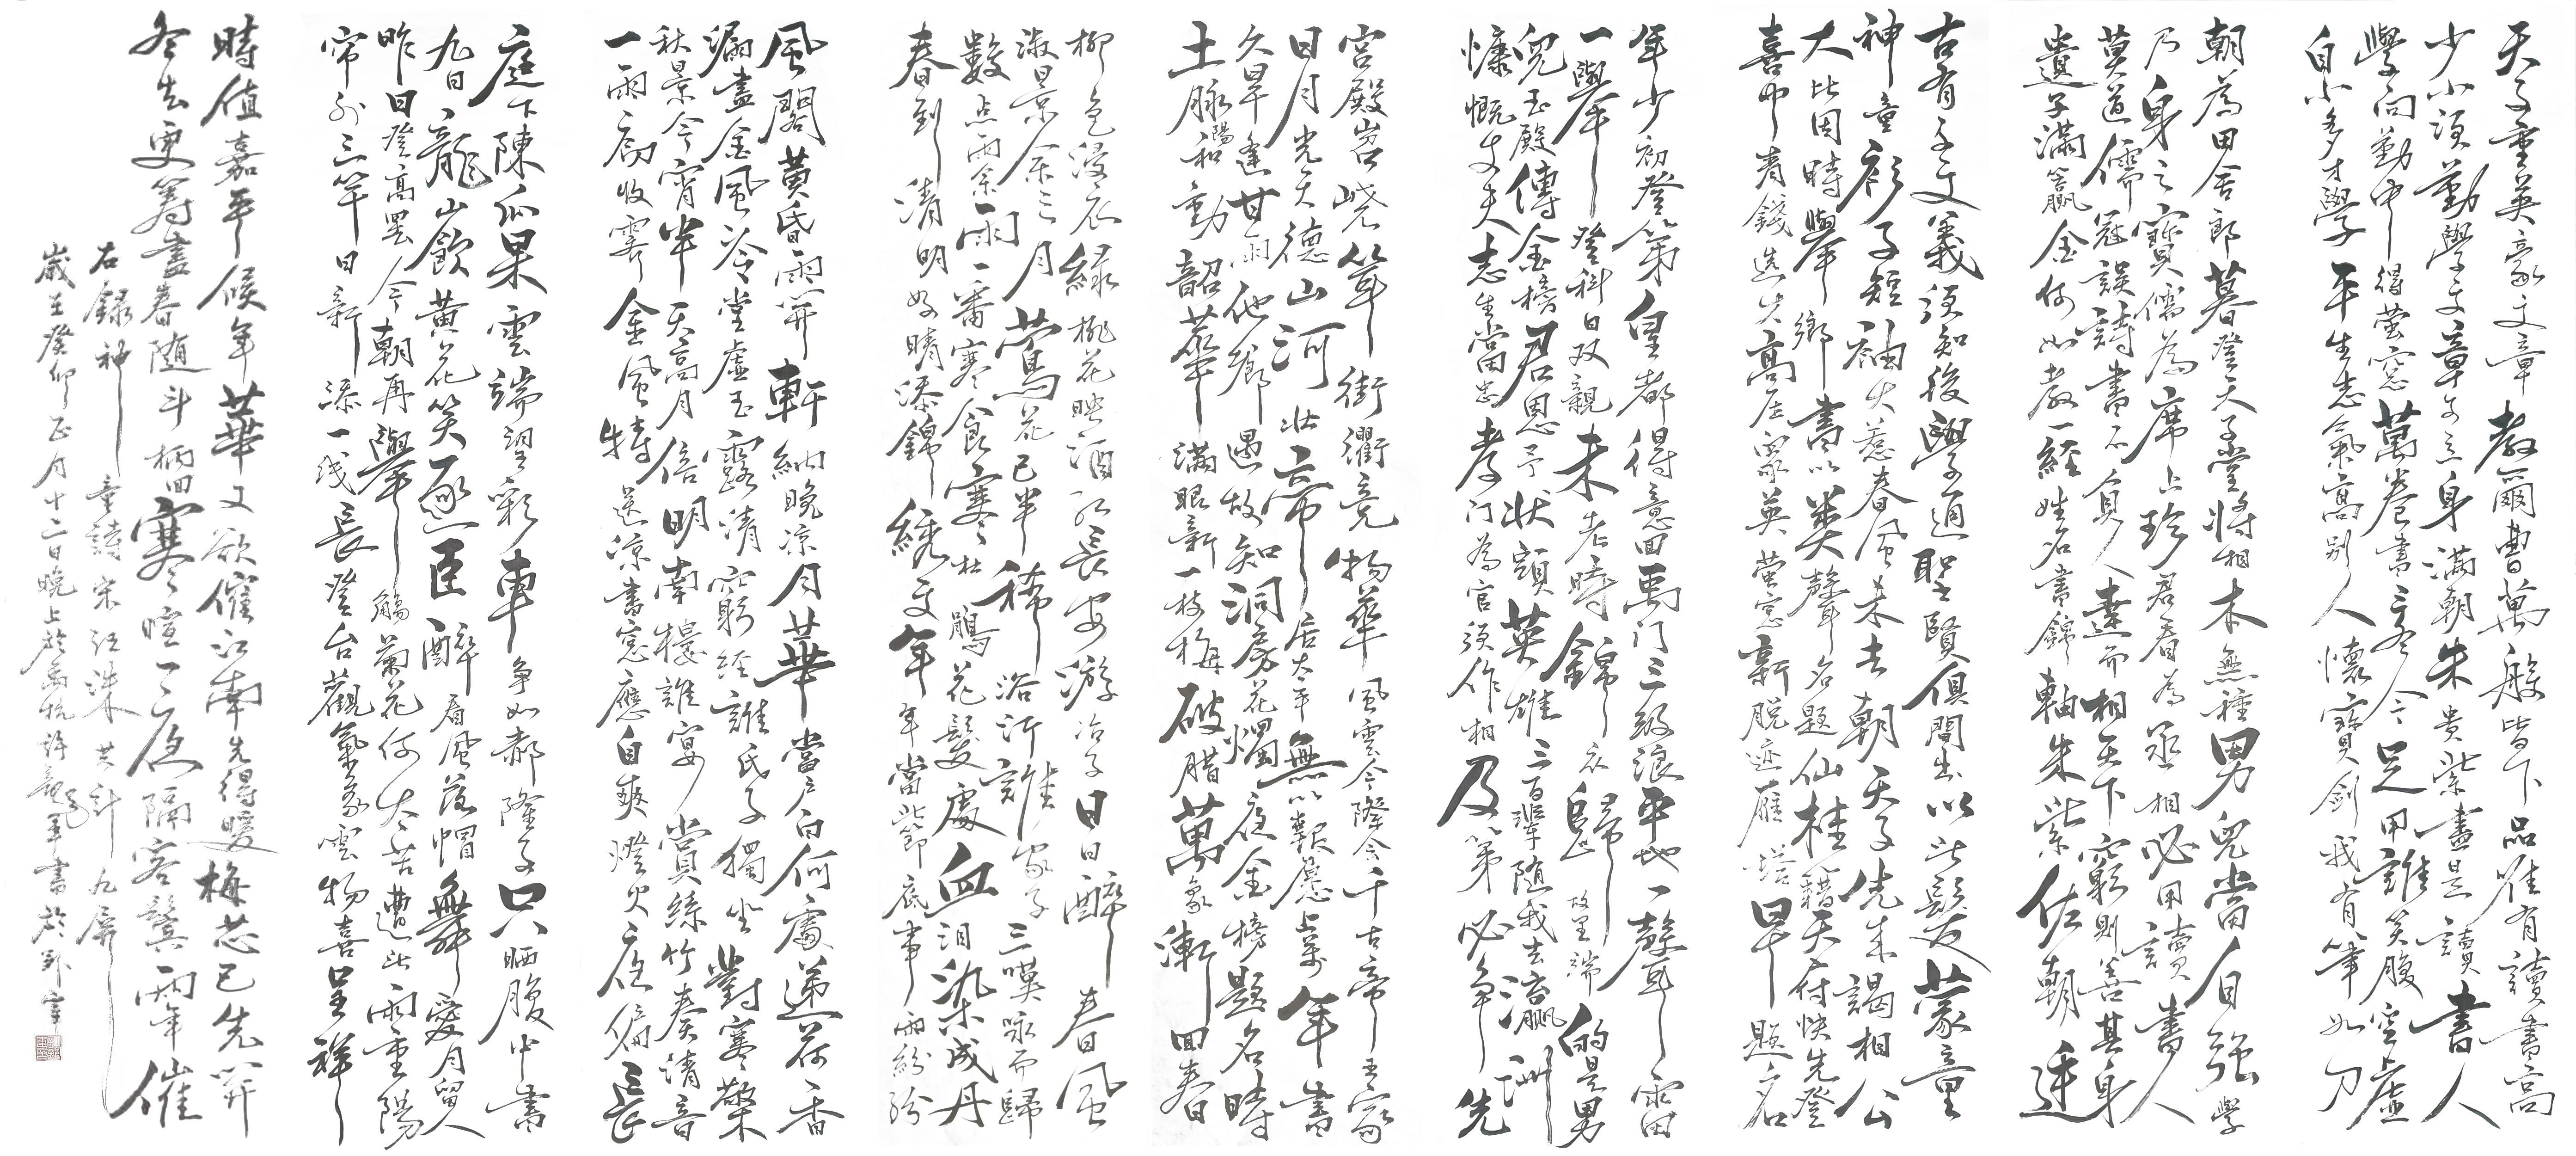 天子重英豪文章教爾曹萬般皆下品惟有讀書高
少小須勤學文章可立身滿朝朱貴紫盡是讀書人
學向勤中得萤窓萬卷書三冬今足用誰笑腹空虛
自小多才學平生志氣高别人懷寶劍我有筆如刀
朝為田舍郎暮登天子堂将相本無種男兒當自強學
乃身之寶儒為席上珍君看為丞相必用讀書人
莫道儒冠誤詩書不負人達而相天下窮則善其身
遺子滿籯金何如教一経姓名書錦軸朱紫佐朝廷
古有千文義須知後學通聖賢俱間出以此發蒙童
神童衫子短袖大惹春風未去朝天子先来謁相公
大比因時舉鄉書以类聲名題仙桂籍天府快先登
喜中青錢选才高压眾英萤窓新脱迹雁塔早題名
年少初登第皇都得意回禹门三級浪平地一聲雷
一舉登科日双親未老時錦衣歸故里端的是男
兒玉殿傳金榜君恩予狀頭英雄三百輩随我去瀛洲
慷慨丈夫志生當忠孝门為官須作相及第必争先
宮殿岧嶢聳街衢竞物華風雲今際会千古帝王家
日月光天德山河壮帝居太平無以報愿上萬年書
久旱逢甘雨他鄉遇故知洞房花燭夜金榜題名時
土脉陽和動韶華滿眼新一枝梅破腊萬象漸回春
柳色浸衣綠桃花映酒红長安游冶子日日醉春風
淑景余三月鶯花已半稀浴沂誰家子三嘆咏而歸
數点雨余雨一番寒食寒杜鵑花發處血泪染成丹
春到清明好晴添錦綉文年年當此節底事雨紛紛
風閣黄昏雨開軒納晚凉月華當户白何處遞荷香
漏盡金風冷堂虛玉露清窮経誰氏子獨坐對寒檠
秋景今宵半天高月倍明南樓誰宴賞絲竹奏清音
一雨初收霽金風特送凉書窓應自爽燈火夜偏長
庭下陳瓜果雲端望彩車争如郝隆子只晒腹中書
九日龍山飲黄花笑逐臣醉看風落帽舞愛月留人
昨日登高罢今朝再舉觴菊花何太苦遭此兩重陽
帘外三竿日新添一线長登台觀氣象雲物喜呈祥
時值嘉平候年華又欲催江南先得暖梅芯已先開
冬去更籌盡春随斗柄回寒暄一夜隔客鬢兩年催
右録神童詩宋汪洙共計九屏
歲在癸卯正月十二日晚上於許軍書於